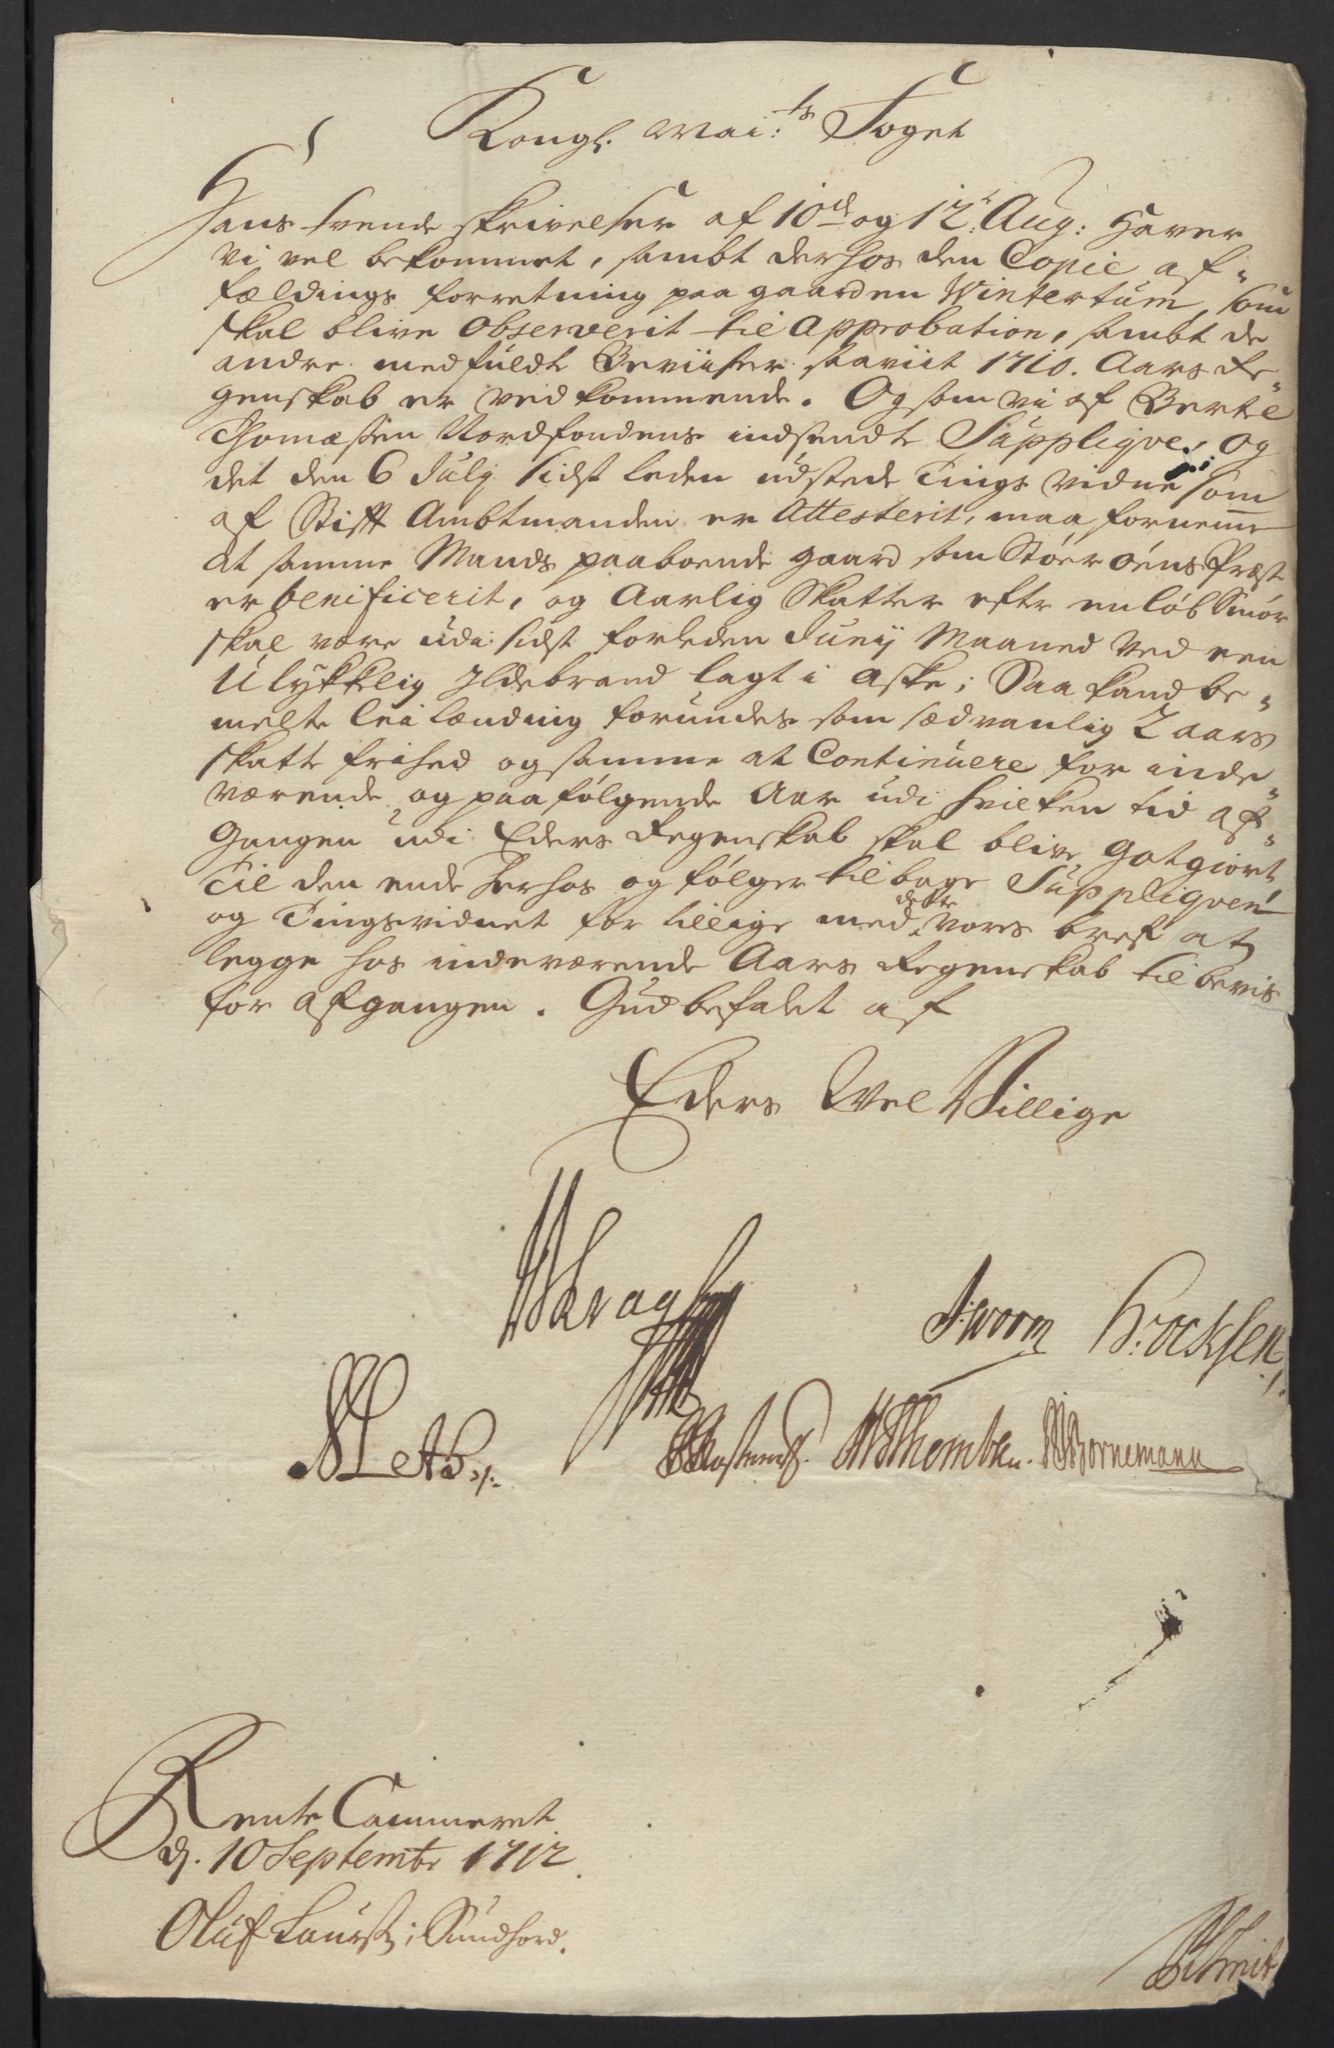 Kongl. Mai:ts Foget
Hans tvende skrivelser af 10de og 12te Aug: Haver
vi vel bekommet, sambt derhos den Copie af-
fældings forretning paa gaarden Wintertum som
skal blive observerit til Approbation, sambt de
andre medfuldte Beviiser saavit 1710. Aars Re-
genskab er vedkommende. Og som vi af Bertel
Thomæssen Nordfondens indsendte Supplique, og
det den 6 Julj sidst leden udstede Tings vidne som
af Stifft Ambtmanden er Attesterit, maa fornemme
at samme Mands paaboende gaard som Støer øens Præst
er benificerit, og Aarlig Skatter efter en løb Smør
skal være udi sidst forleden Junij Maaned Ved een
Ulykkelig Ildebrand lagt i Aske; Saa kand be-
melte leilænding forundes som sædvanlig 2 aars
skatte frihed og samme at Continuere for inde-
værende og paafølgende Aar udi hvilken tid af-
Gangen udi Eders Regenskab skal blive gotgiort
Til den ende herhos og følger tilbage Suppliquen
og Tingsvidnet for tillige med dette vores bref at
legge hos indeværende Aars Regenskab til bevis
for afgangen. Gud befalet af
Eders Vel Villige
WKragh
J: Worm H: Ocksen
WThomben. Bornemann
Rente Cammeret
d. 10 Septembr 1712
Oluf Laurss i Sundfiord.
Schmit